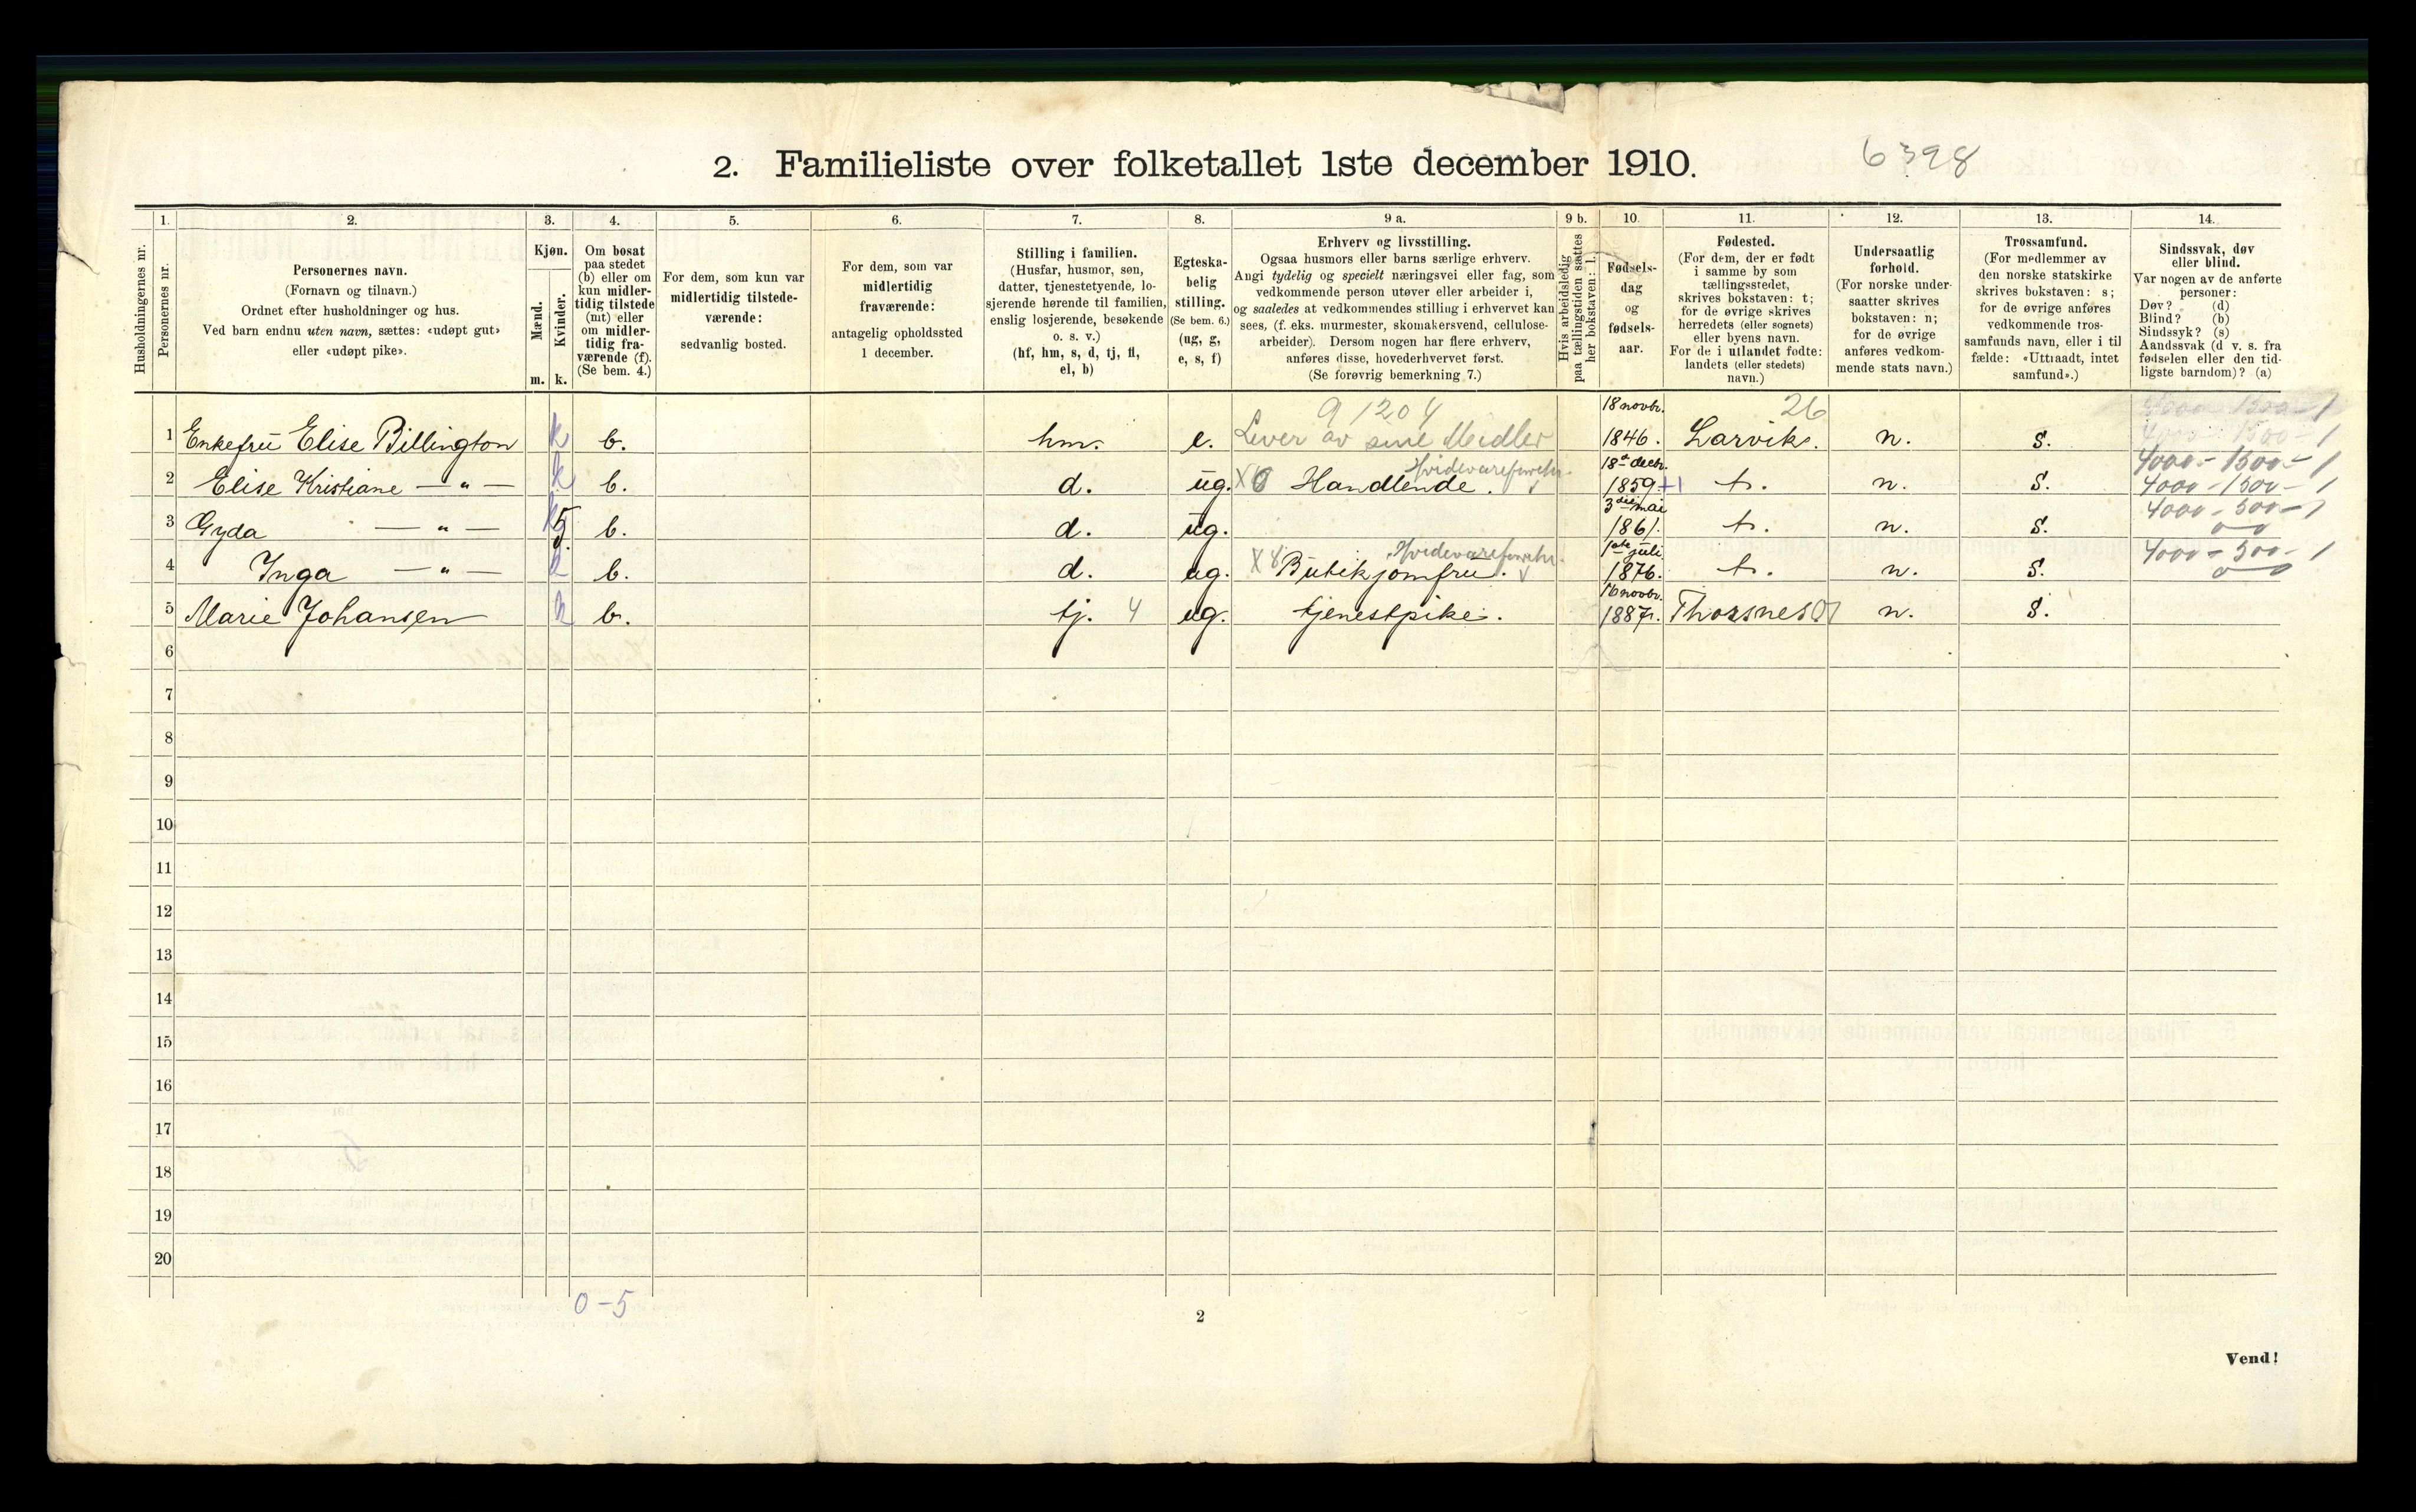 2. Familieliste over folketallet 1ste december 1910.
6398
Husholdningernes nr.
1.
Personernes nr.
2.
Personernes navn.
(Fornavn og tilnavn.)
Ordnet efter husholdninger og hus.
Ved barn endnu uten navn, sættes: «udøpt gut»
eller «udøpt pike».
3.
Kjøn.
Mænd.
Kvinder.
m.
k.
4.
Om bosat
paa stedet
(b) eller om
kun midler-
tidig tilstede
(mt) eller
om midler-
tidig fra-
værende (f).
(Se bem. 4.)
5.
For dem, som kun var
midlertidig tilstede-
værende:
sedvanlig bosted.
6.
For dem, som var
midlertidig
fraværende:
antagelig opholdssted
1 december.
7.
Stilling i familien.
(Husfar, husmor, søn,
datter, tjenestetyende, lo-
sjerende hørende til familien,
enslig losjerende, besøkende
o. s. v.)
(hf, hm, s, d, tj, fl,
el, b)
8.
Egteska-
belig
stilling.
(Se bem. 6.)
(ug, g,
e, s, f)
9 a.
Erhverv og livsstilling.
Ogsaa husmors eller barns særlige erhverv.
Angi tydelig og specielt næringsvei eller fag, som
vedkommende person utøver eller arbeider i,
og saaledes at vedkommendes stilling i erhvervet kan
sees, (f. eks. murmester, skomakersvend, cellulose-
arbeider). Dersom nogen har flere erhverv,
anføres disse, hovederhvervet først.
(Se forøvrig bemerkning 7.)
9 b.
Hvis arbeidsledig
paa tællingstiden sættes
her bokstaven: l.
10.
Fødsels-
dag
og
fødsels-
aar.
11.
Fødested.
(For dem, der er født
i samme by som
tællingsstedet,
skrives bokstaven: t;
for de øvrige skrives
herredets (eller sognets)
eller byens navn.
For de i utlandet fødte:
landets (eller stedets)
navn.)
12.
Undersaatlig
forhold.
(For norske under-
saatter skrives
bokstaven: n;
for de øvrige
anføres vedkom-
mende stats navn.)
13.
Trossamfund.
(For medlemmer av
den norske statskirke
skrives bokstaven: s;
for de øvrige anføres
vedkommende tros-
samfunds navn, eller i til
fælde: «Uttraadt, intet
samfund».)
14.
Sindssvak, døv
eller blind.
Var nogen av de anførte
personer:
Døv? (d)
Blind? (b)
Sindssyk? (s)
Aandssvak (d v. s. fra
fødselen eller den tid-
ligste barndom)? (a)
9 1204 18 novbr. 26
1 Enkefru Elise Billington k b. hm. e. Lever av sine Midler 1846. Larvik. n. s.
Hvidevareforretn. 18de decbr. 4000 - 1500 - 1
2 Elise Kristiane — „ — k b. d. ug. X 6 Handlende. 1859. +1 t. n. s. 4000 - 1500 - 1
3die mai 4000 - 500 - 1
3 Gyda — „ — b. d. ug. 1861. t. n. s.
Hvidevareforretn. 1ste juli 4000 - 500 - 1
4 Inga — „ — k b. d. ug. X 8 Butikjomfru. 1876. t. n. s.
16 novbr.
5 Marie Johansen k b. tj. 4 ug. tjenestpike. 1887. Thorsnes 01 n. s.
6
7
8
9
10
11
12
13
14
15
16
17
18
19
20
0 - 5
2
Vend!